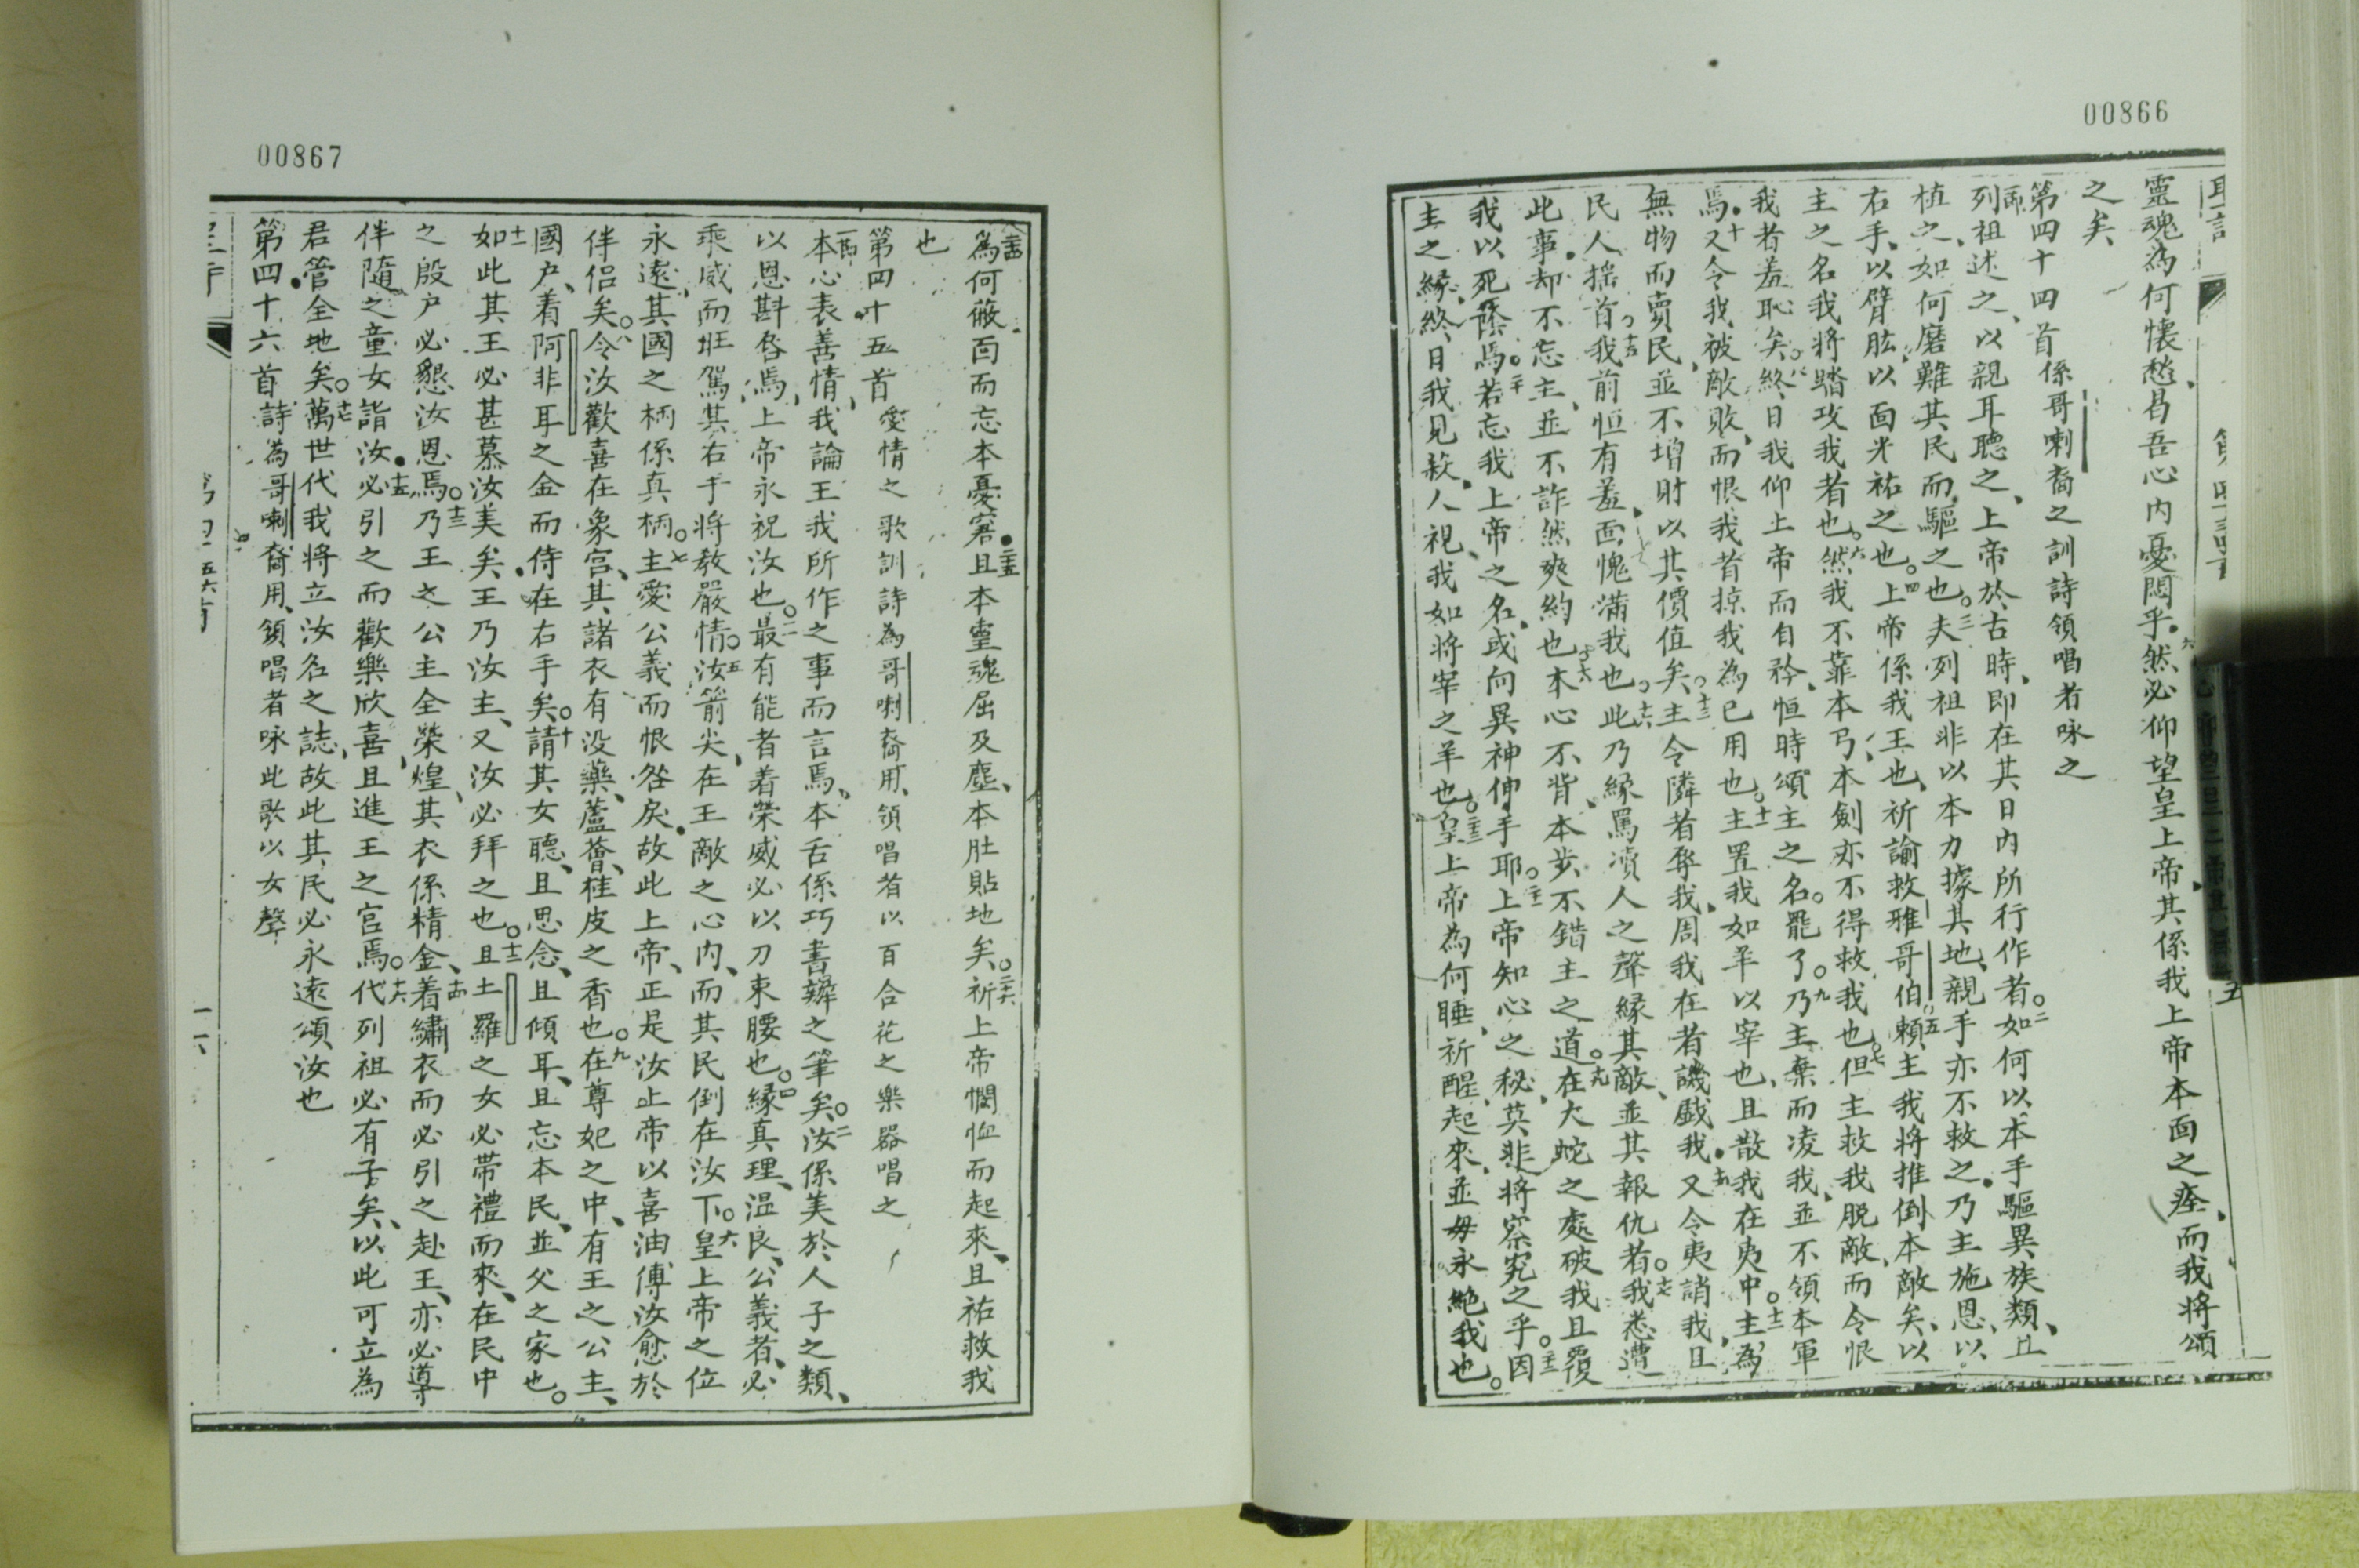 00866
靈魂為何懷愁、昌吾心内憂悶乎。六然必仰望皇上帝、其係我上帝本面之痊、而我將頌
之矣
第四十四首 係哥喇裔之訓詩領唱者咏之
列祖述之、以親耳聽之、上帝於古時、即在其日内所行作者。二如何以本手驅異族類、且
植之、如何磨難其民而驅之也。三夫列祖非以本力據其地、親手亦不救之。乃主施恩、以
右手、以臂肱、以面光祐之也。四上帝係我王也、祈諭救雅哥伯。五賴主我將推倒本敵矣、以
主之名我將踏攻我者也。六然我不靠本弓、本劍亦不得救我也。七但主救我脱敵、而令恨
我者羞恥矣。八終日我仰上帝而自矜、恒時頌主之名。罷了。九乃主棄而凌我、並不領本軍
焉。十又令我被敵敗、而恨我者掠我為己用也。十一主置我如羊以宰也、且散我在夷中。十二主為
無物而賣民、並不增財以其價值矣。十三主令隣者辱我、周我在者譏戲我。十四又令夷誚我、且
民人搖首。十五我前恒有羞、面愧滿我也。十六此乃緣罵凟人之聲、緣其敵、並其報仇者。十七我悉遭
此事、却不忘主、並不詐然爽約也。十八本心不背、本步不錯主之道。十九在大蛇之處破我、且覆
我以死蔭焉。二十若忘我上帝之名、或向異神伸手耶。二十一上帝知心之秘、莫非將察究之乎。二十二因
主之緣、終日我見殺、人視我如將宰之羊也。二十三皇上帝為何睡、祈醒起來、並毋永絕我也。
00867
二十四為何蔽面而忘本憂窘。二十五且本靈魂屈及塵、本肚貼地矣。二十六祈上帝憫恤而起來、且祐救我
也
第四十五首 愛情之歌訓詩為哥喇裔用、領唱者以百合花之樂器唱之
一節本心表善情、我論王我所作之事而言焉、本舌係巧書辦之筆矣。二汝係美於人子之類、
以恩斟唇焉、上帝永祝汝也。三最有能者着榮威必以刀束腰也。四緣真理、温良、公義者、必
乘威而旺駕、其右手將教嚴情。五汝箭尖、在王敵之心内、而其民倒在汝下。六皇上帝之位
永遠、其國之柄係真柄。七主愛公義而恨咎戾、故此上帝、正是汝上帝以喜油傅汝愈於
伴侣矣。八令汝歡喜在象宫、其諸衣有没藥、蘆薈、桂皮之香也。九在尊妃之中、有王之公主、
國户、着阿非耳之金而侍在右手矣。十請其女聽、且思念、且傾耳、且忘本民、並父之家也。
十一如此其王必甚慕汝美矣。王乃汝主、又汝必拜之也。十二且土羅之女必帶禮而來、在民中
之殷户必懇汝恩焉。十三乃王之公主全榮煌、其衣係精金。十四着繡衣而必引之赴王、亦必導
伴隨之童女詣汝。十五必引之而歡樂欣喜、且進王之宫焉。十六代列祖必有子矣、以此可立為
君管全地矣。十七萬世代我將立汝名之誌、故此其民必永遠頌汝也
第四十六首 詩為哥喇裔用、領唱者咏此歌以女聲